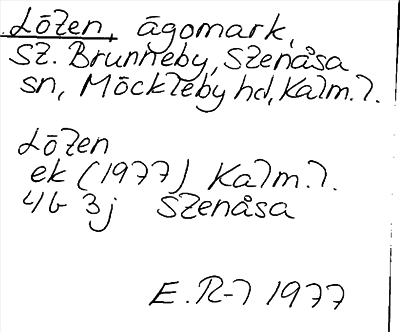 Lōten, āgomark,
St. Brunneby, Stenåsa
sn, Möckleby hd, Kalm.l.
Lōten
ek (1977) Kalm.l.
4G 3j Stenåsa
E.R-l 1977